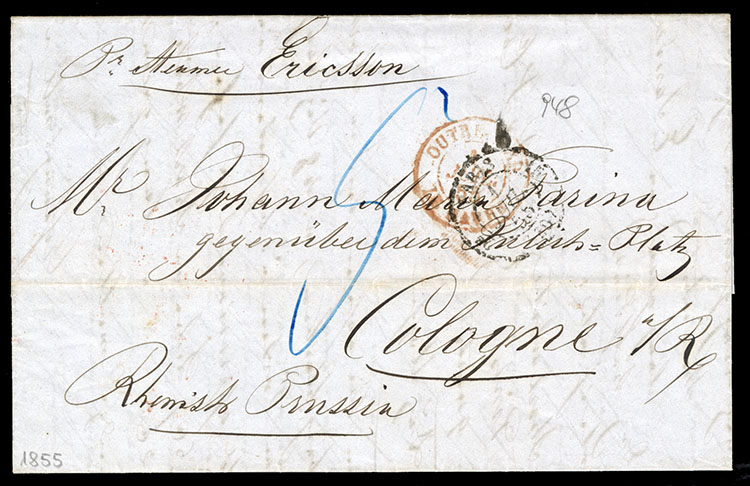 Pr. Steamer Ericsson
948
OUTRE
Mr. Johann Maria Farina
gegenüber dem Jülichs=Platz
Cologne a/R
Rhenish Prussia
1855